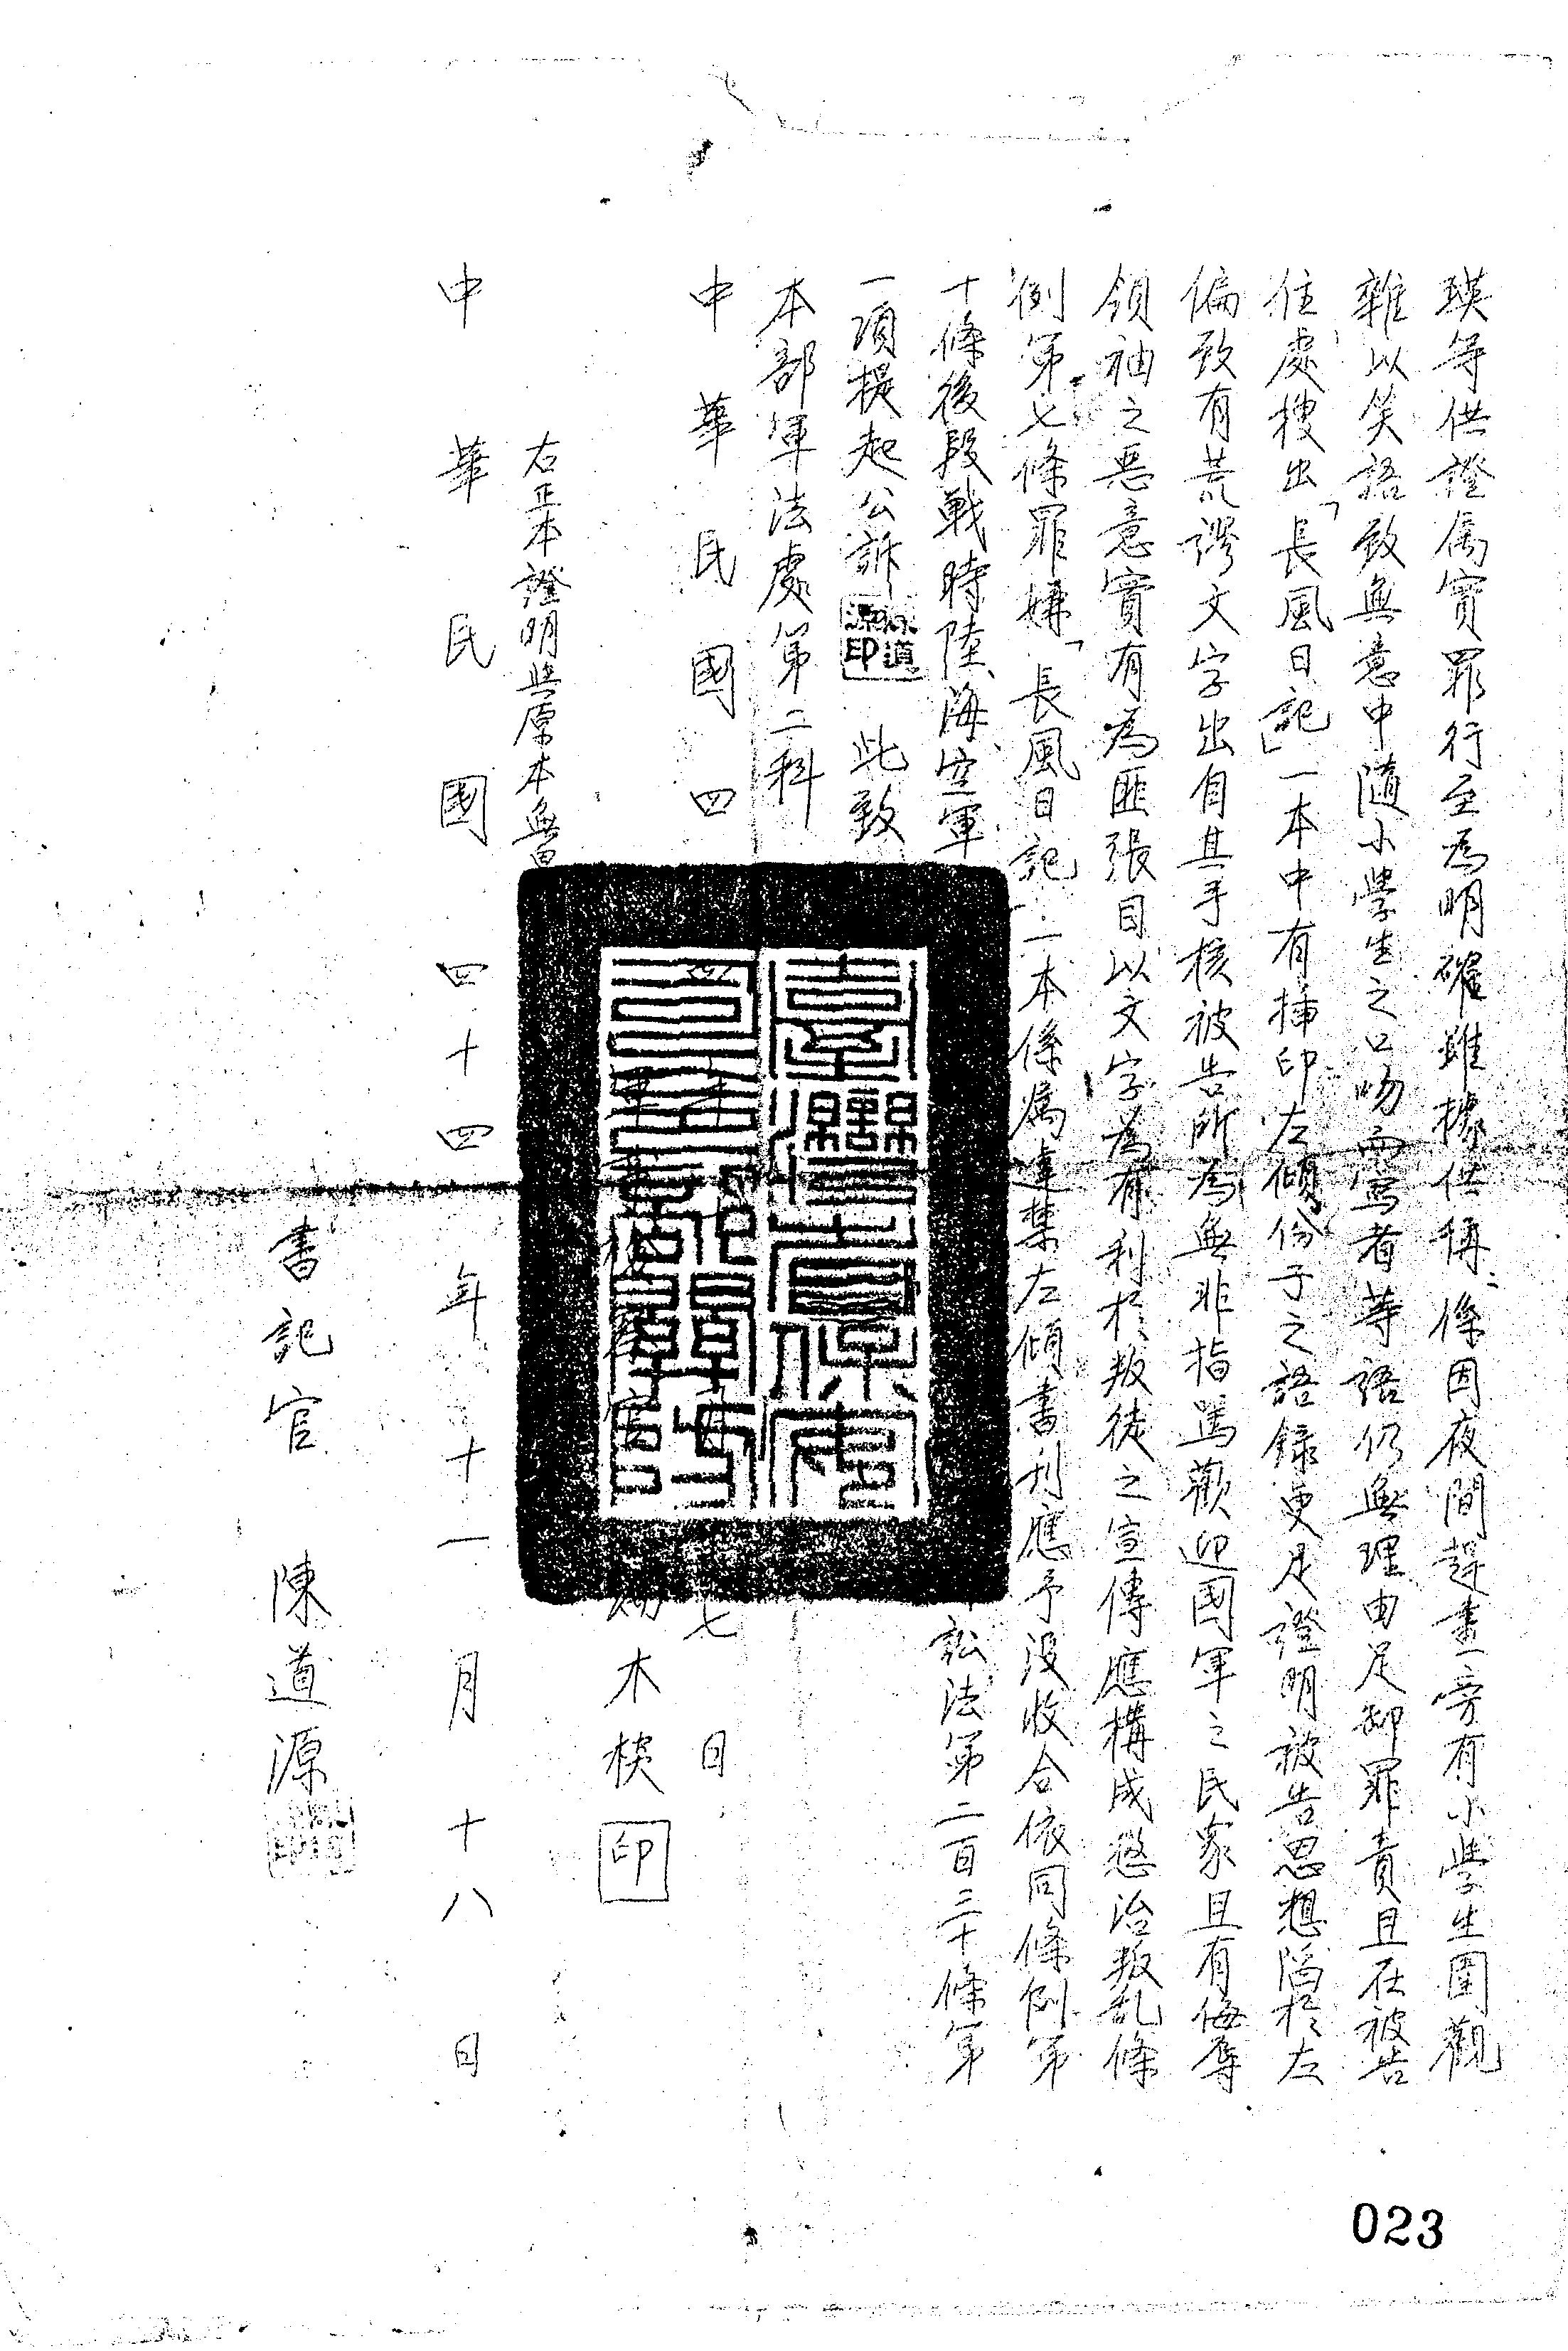 瑛等供證属實罪行至為明確雖據供稱係因夜間趕畫旁有小學生圍觀
雜以笑語致無意中隨小學生之口吻而寫者等語仍無理由足卸罪責且在被告
住處搜出「長風日記」一本中有插印左傾份子之語録更足證明被告思想陷於左
偏致有荒謬文字出自其手核被告所為無非指駡歡迎國軍之民衆且有侮辱
領袖之惡意實有為匪張目以文字為有利於叛徒之宣傳應構成懲治叛乱條
例第七條罪嫌「長風日記」一本係屬違禁左傾書刊應予没收合依同條例第
十條後段戰時陸海空軍
訟法第二百三十條第
一項提起公訴 此致
本部軍法處第二科
中華民國四
七日
木棪 印
右正本證明與原本無
中華民國四十四年十一月十八日
書記官 陳道源
023